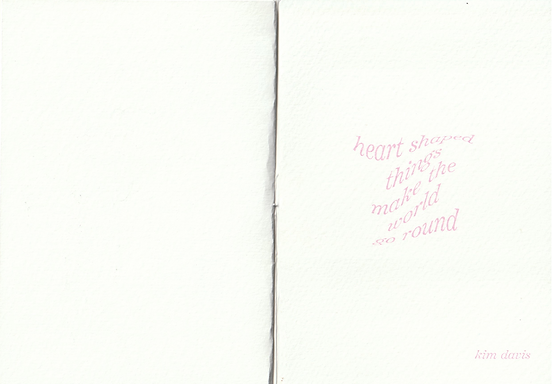 heart shaped
things
make the
world
go round
kim davis